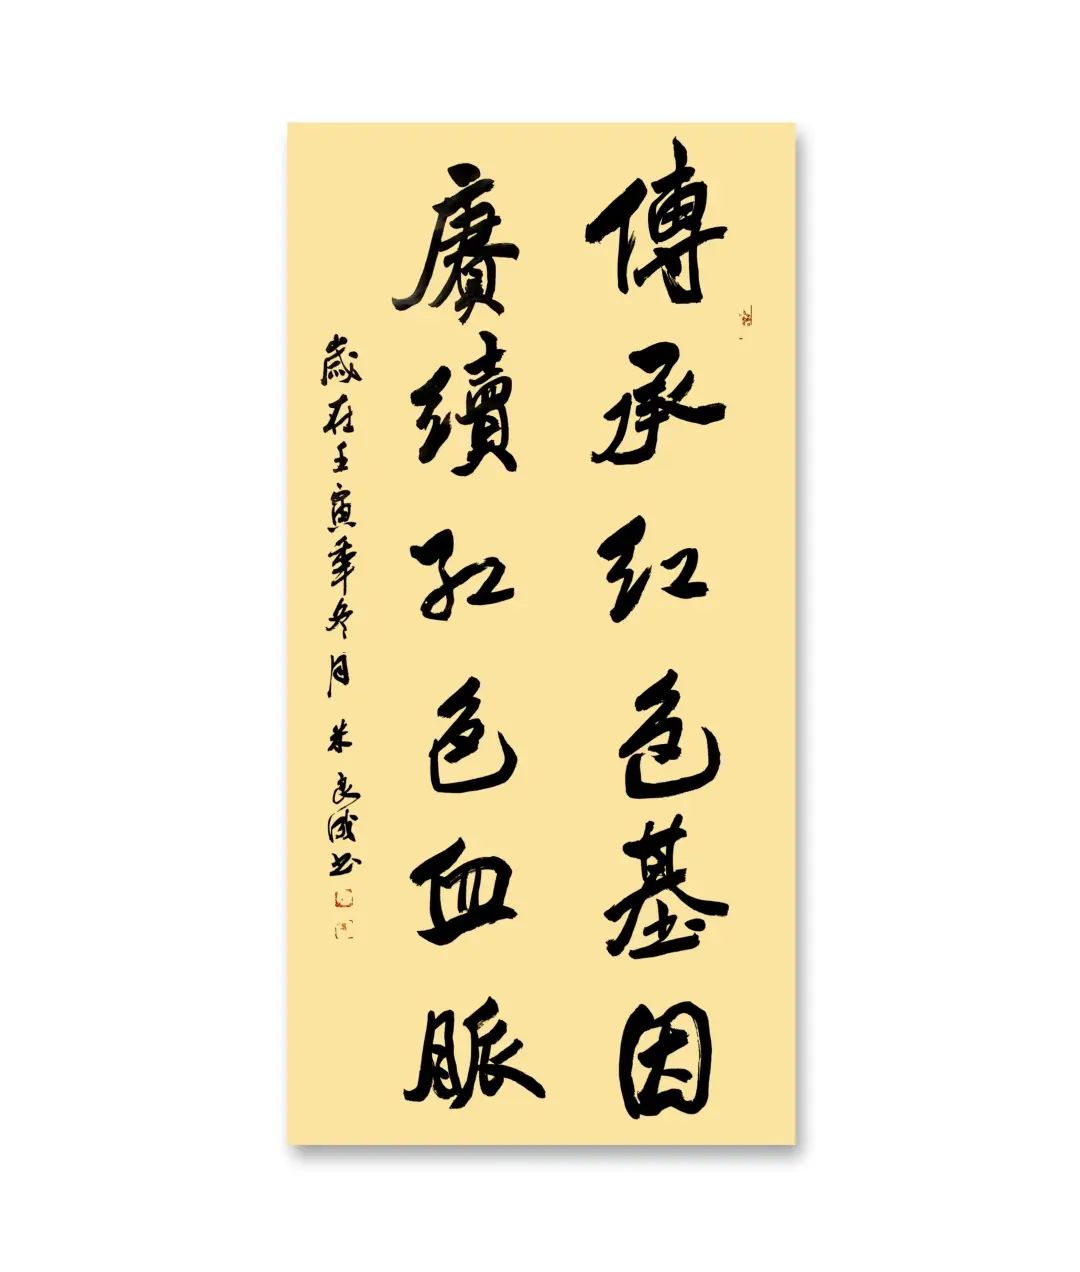 傳承红色基因
賡續红色血脈
歲在壬寅年冬月 朱良成书